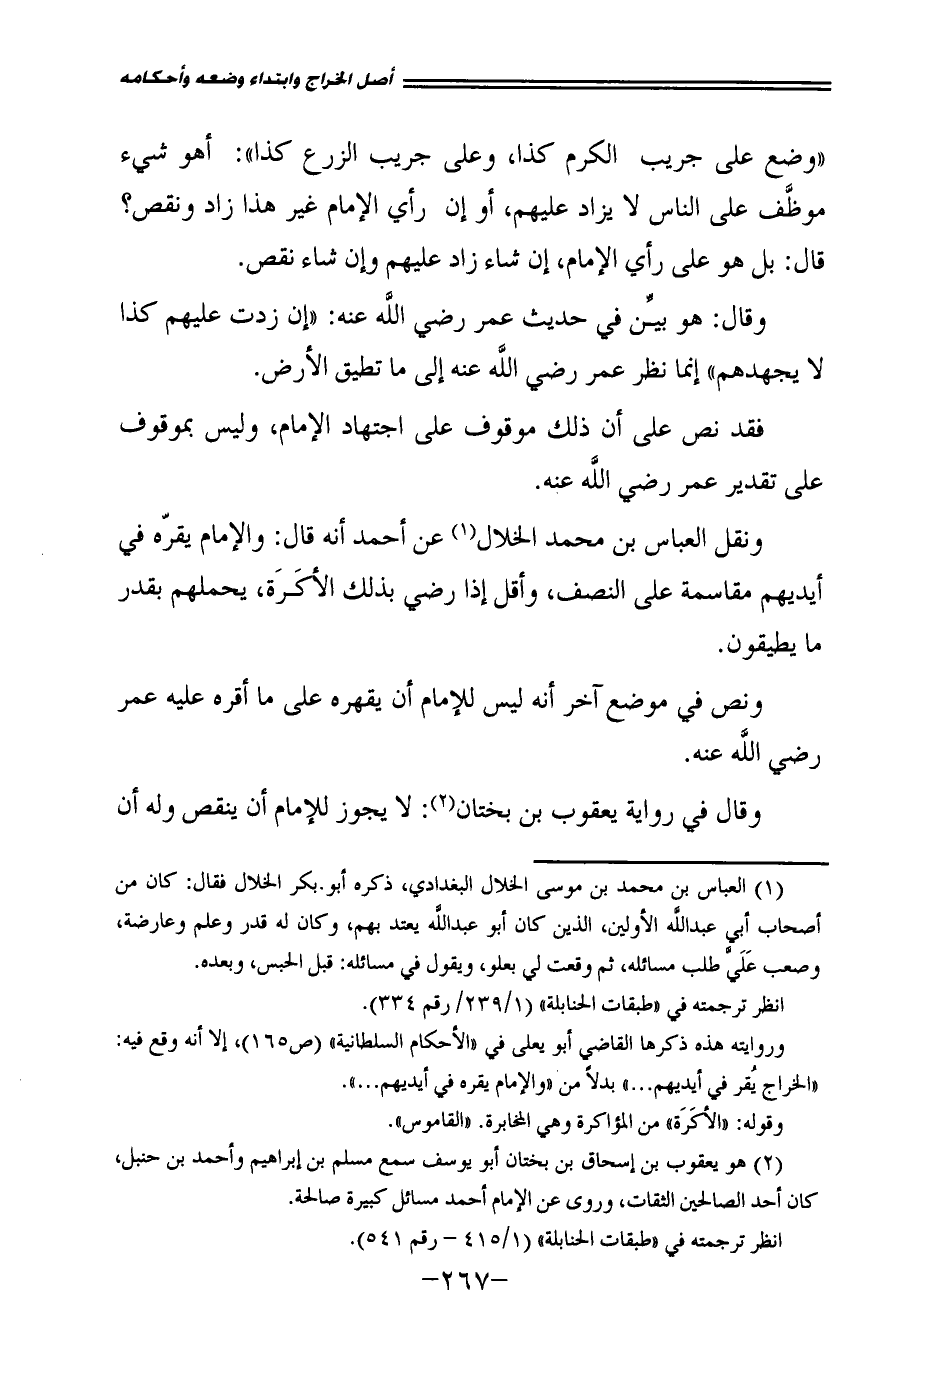 أصل الخراج وابتداء وضعه وأحكامه
«وضع على جريب الكرم كذا، وعلى جريب الزرع كذا»: أهو شيء
موظَّف على الناس لا يزاد عليهم، أو إن رأي الإمام غير هذا زاد ونقص؟
قال: بل هو على رأي الإمام، إن شاء زاد عليهم وإن شاء نقص.
وقال: هو بيـِّن في حديث عمر رضي اللَّه عنه: «إن زدت عليهم كذا
لا يجهدهم» إنما نظر عمر رضي اللَّه عنه إلى ما تطيق الأرض.
فقد نص على أن ذلك موقوف على اجتهاد الإمام، وليس بموقوف
على تقدير عمر رضي اللَّه عنه.
ونقل العباس بن محمد الخلال(١) عن أحمد أنه قال: والإمام يقرّه في
أيديهم مقاسمة على النصف، وأقل إذا رضي بذلك الأكَـرَة، يحملهم بقدر
ما يطيقون.
ونص في موضع آخر أنه ليس للإمام أن يقهره على ما أقره عليه عمر
رضي اللَّه عنه.
وقال في رواية يعقوب بن بختان(٢): لا يجوز للإمام أن ينقص وله أن
(١) العباس بن محمد بن موسى الخلال البغدادي، ذكره أبو.بكر الخلال فقال: كان من
أصحاب أبي عبداللَّه الأولين، الذين كان أبو عبداللَّه يعتد بهم، وكان له قدر وعلم وعارضة،
وصعب عَلَيَّ طلب مسائله، ثم وقعت لي بعلو، ويقول في مسائله: قبل الحبس، وبعده.
انظر ترجمته في «طبقات الحنابلة» (٢٣٩/١/ رقم ٣٣٤).
وروايته هذه ذكرها القاضي أبو يعلى في «الأحكام السلطانية» (ص١٦٥)، إلا أنه وقع فيه:
«الخراج يُقر في أيديهم...» بدلاً من «والإمام يقره في أيديهم...».
وقوله: «الأكَرَة» من المؤاكرة وهي المخابرة. «القاموس».
(٢) هو يعقوب بن إسحاق بن بختان أبو يوسف سمع مسلم بن إبراهيم وأحمد بن حنبل،
كان أحد الصالحين الثقات، وروى عن الإمام أحمد مسائل كبيرة صالحة.
انظر ترجمته في «طبقات الحنابلة» (٤١٥/١ – رقم ٥٤١).
–٢٦٧–